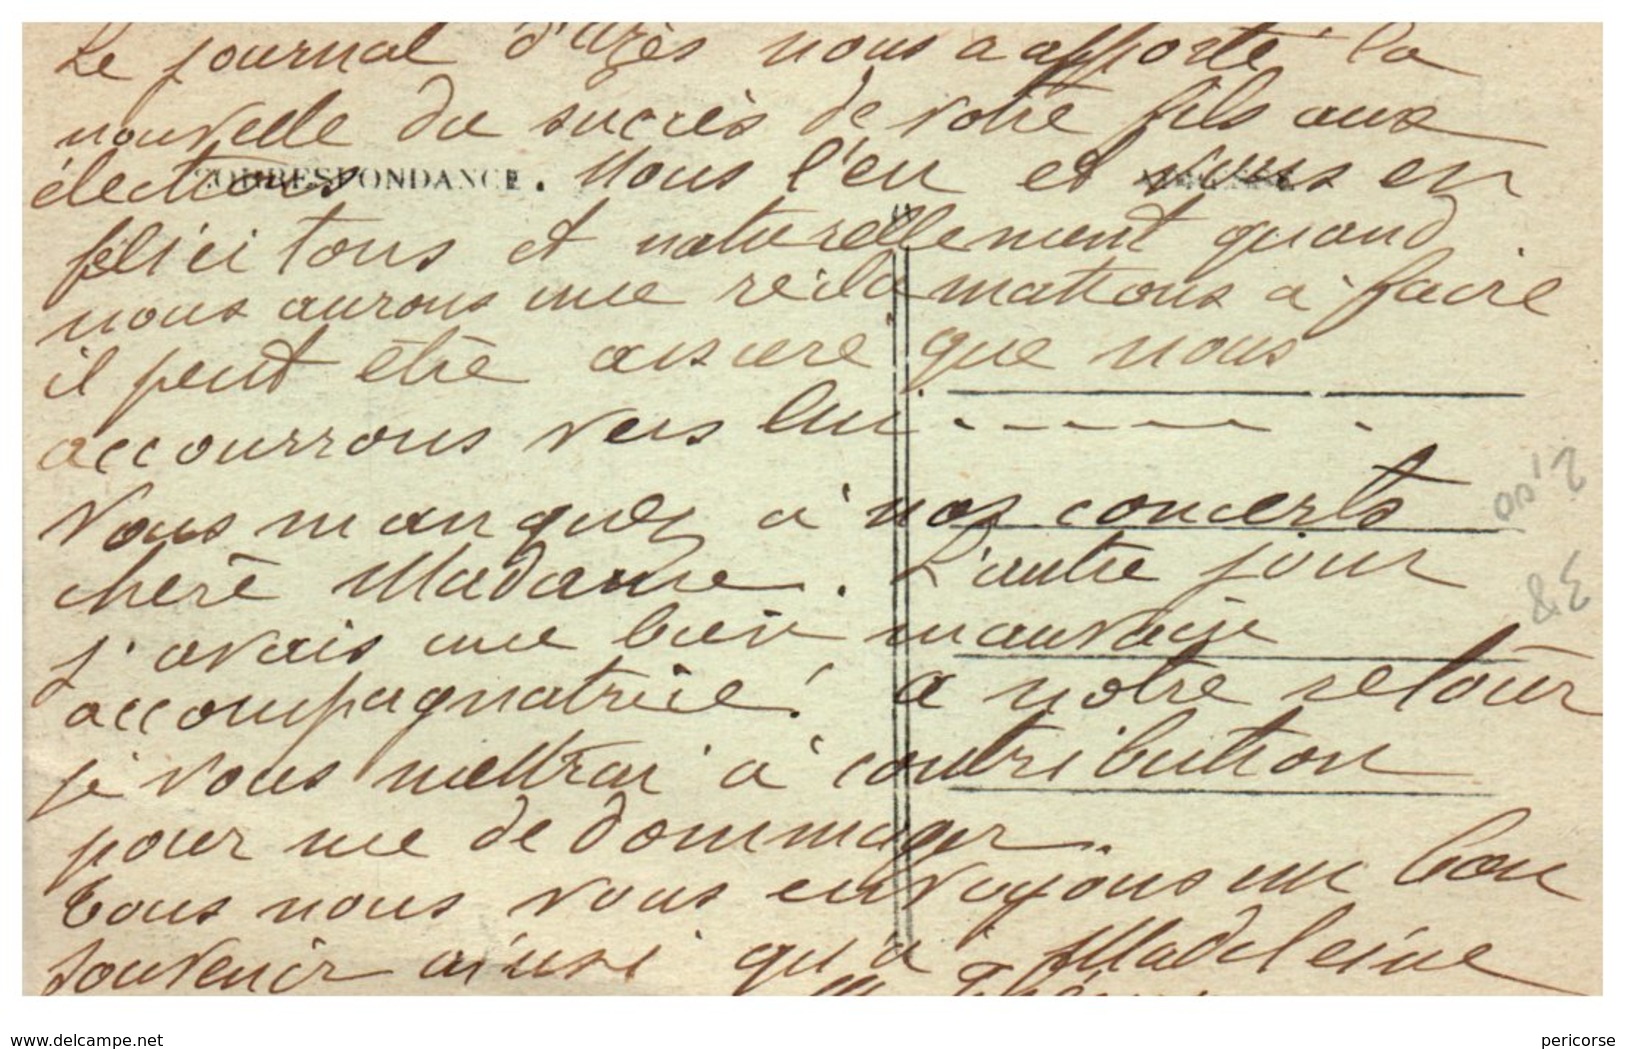 Le journal d'Uzès nous a apporté la
nouvelle du succès de votre fils aux
CORRESPONDANCE
élections. Nous l'en et vous en
félicitons et naturellement quand
nous aurons une réclamations à faire
il peut être assuré que nous
accourrons vers lui - - - - -
Vous manquez à nos concerts
chère Madame. L'autre jour
j'avais une bien mauvaise
accompagnatrice! a notre retour
je vous mettrai à contribution
pour me dedommager.
tous nous vous envoyons un bon
souvenir ainsi qu'à Madeleine
2,00
38
www.delcampe.net
pericorse